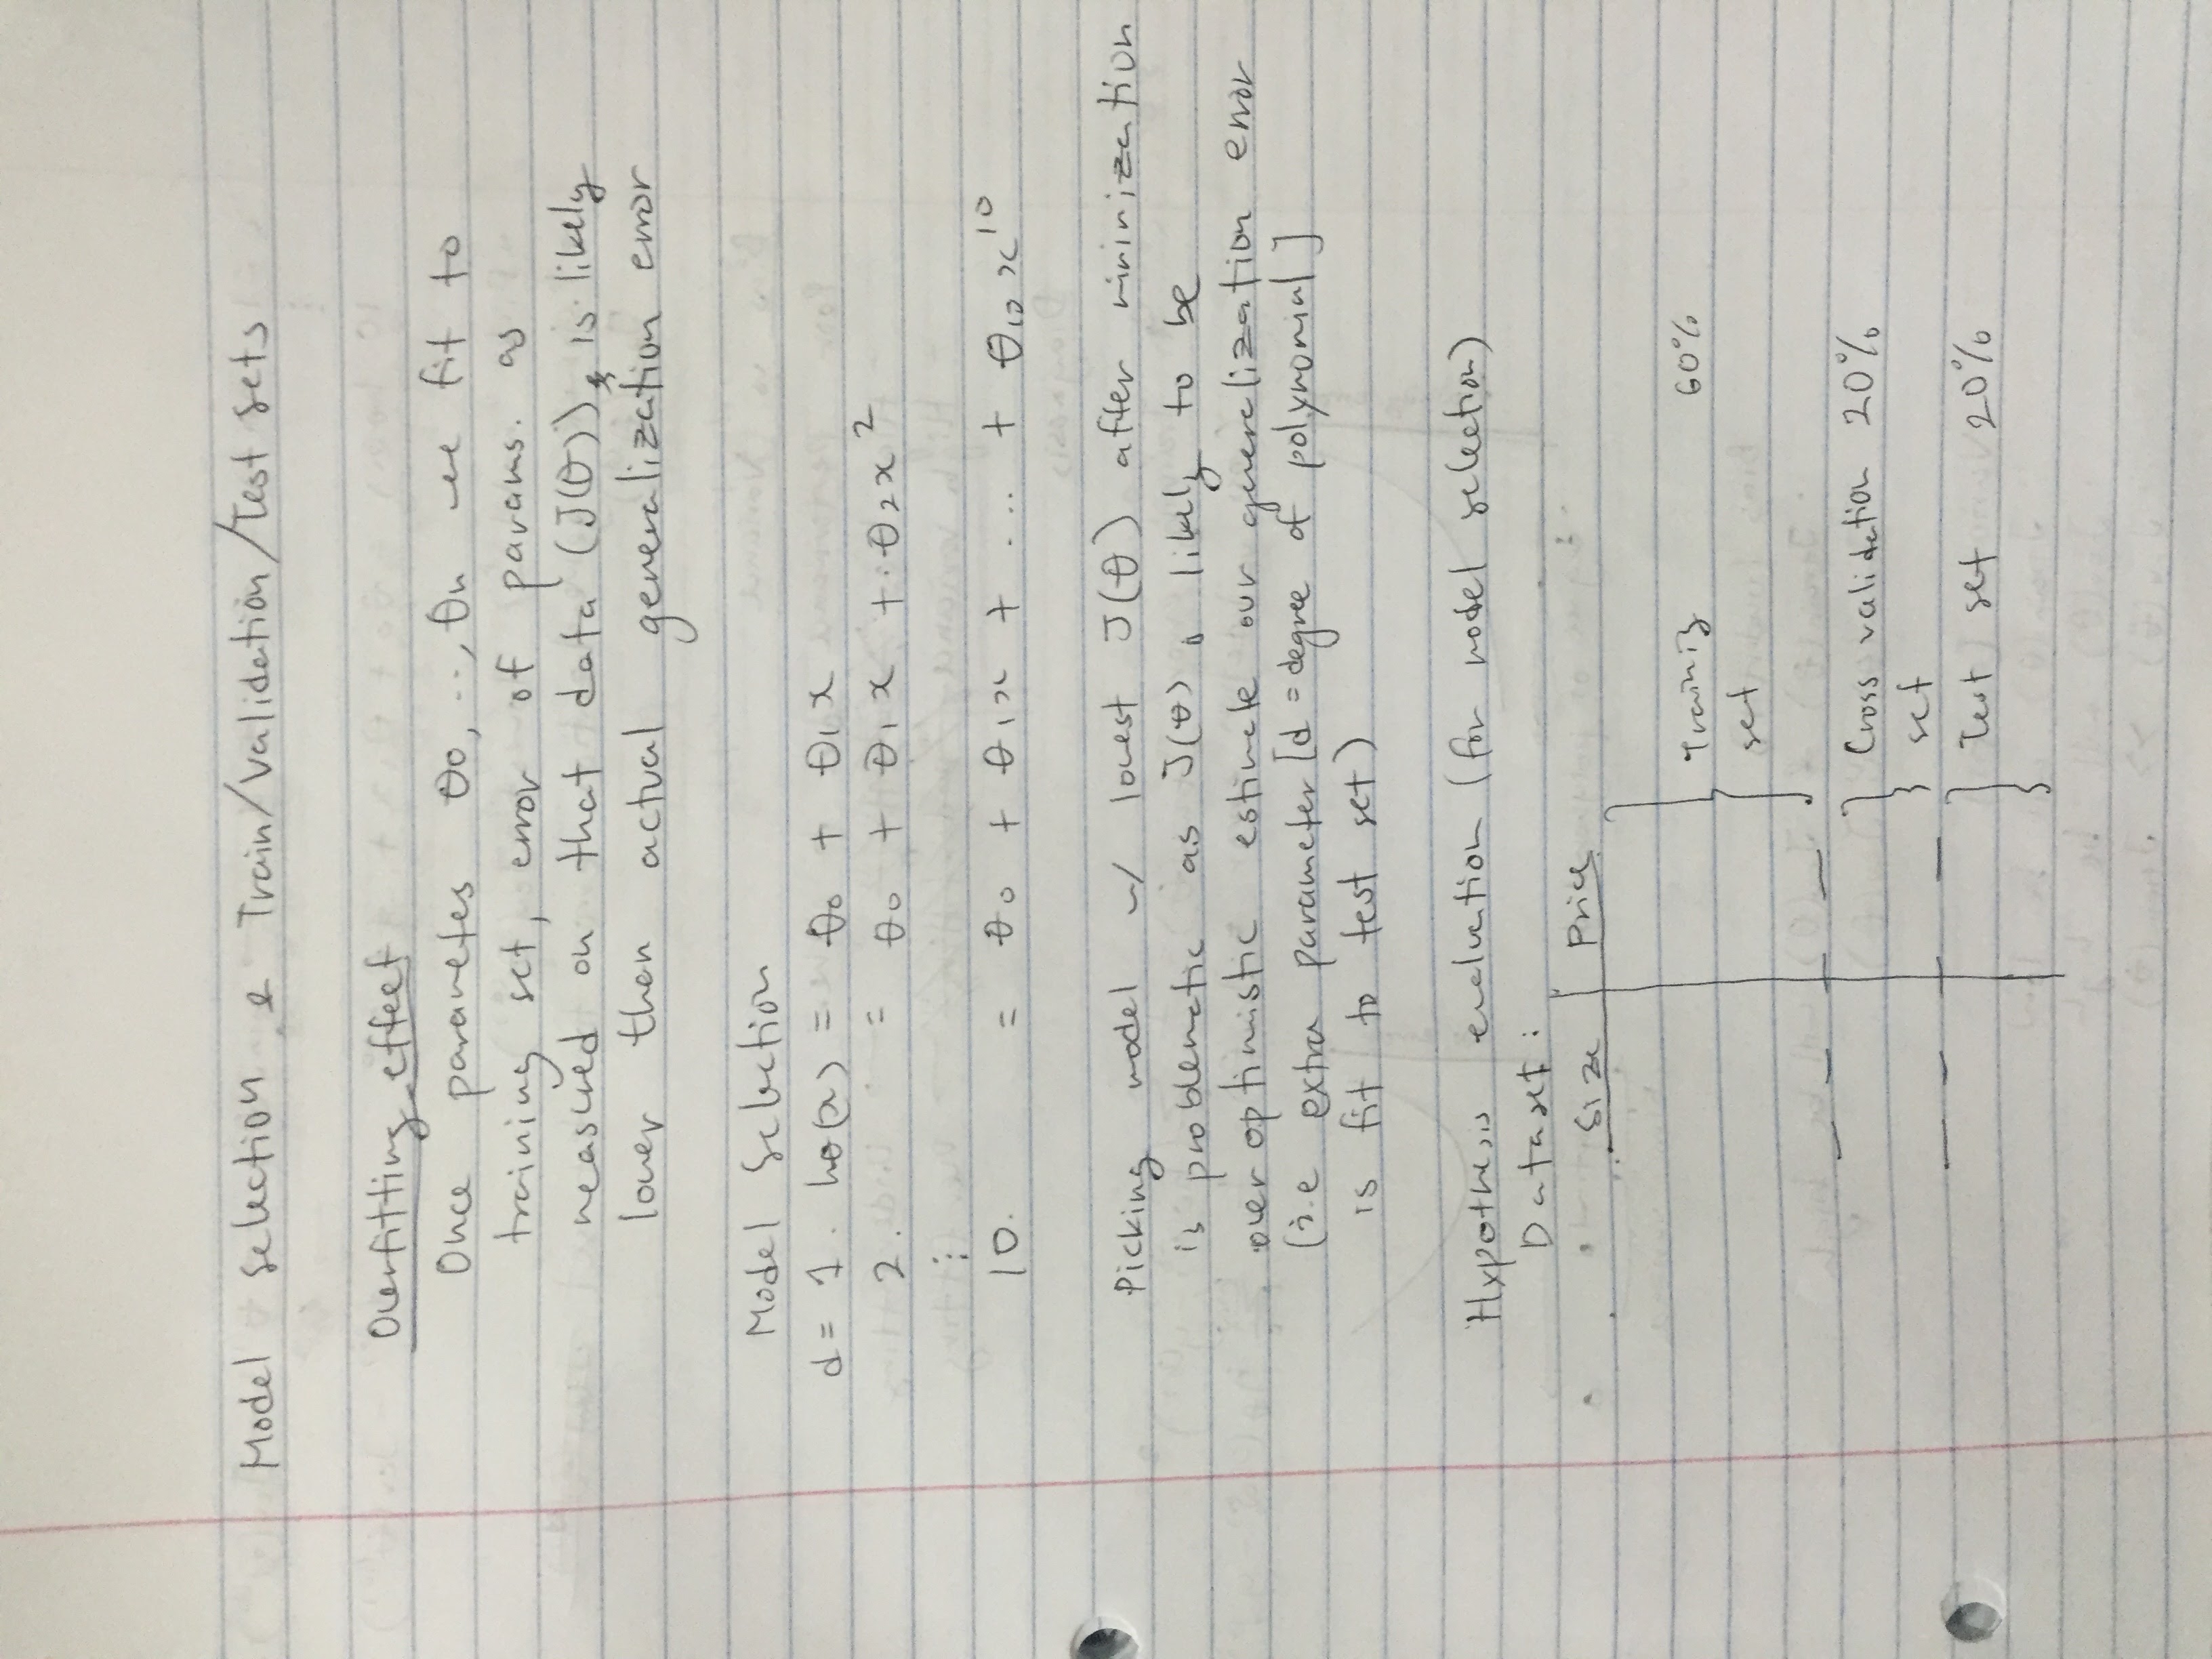 Model selection & Train/Validation/Test Sets
Overfitting effect
Once parameters θ0, .., θn are fit to
training set, error of params. as
measured on that data (J(θ)), is likely
lower than actual generalization error
Model Selection
d = 1. hθ(x) = θ0 + θ1x
2. = θ0 + θ1x + θ2x²
⋮
10. = θ0 + θ1x + ... + θ10x¹⁰
Picking model w/ lowest J(θ) after minimization
is problematic as J(θ) is likely to be
over optimistic estimate our generalization error
(i.e extra parameter [d = degree of polynomial]
is fit to test set)
Hypothesis evaluation (for model selection)
Dataset:
Size Price
Training 60%
set
Cross validation 20%
set
Test set 20%